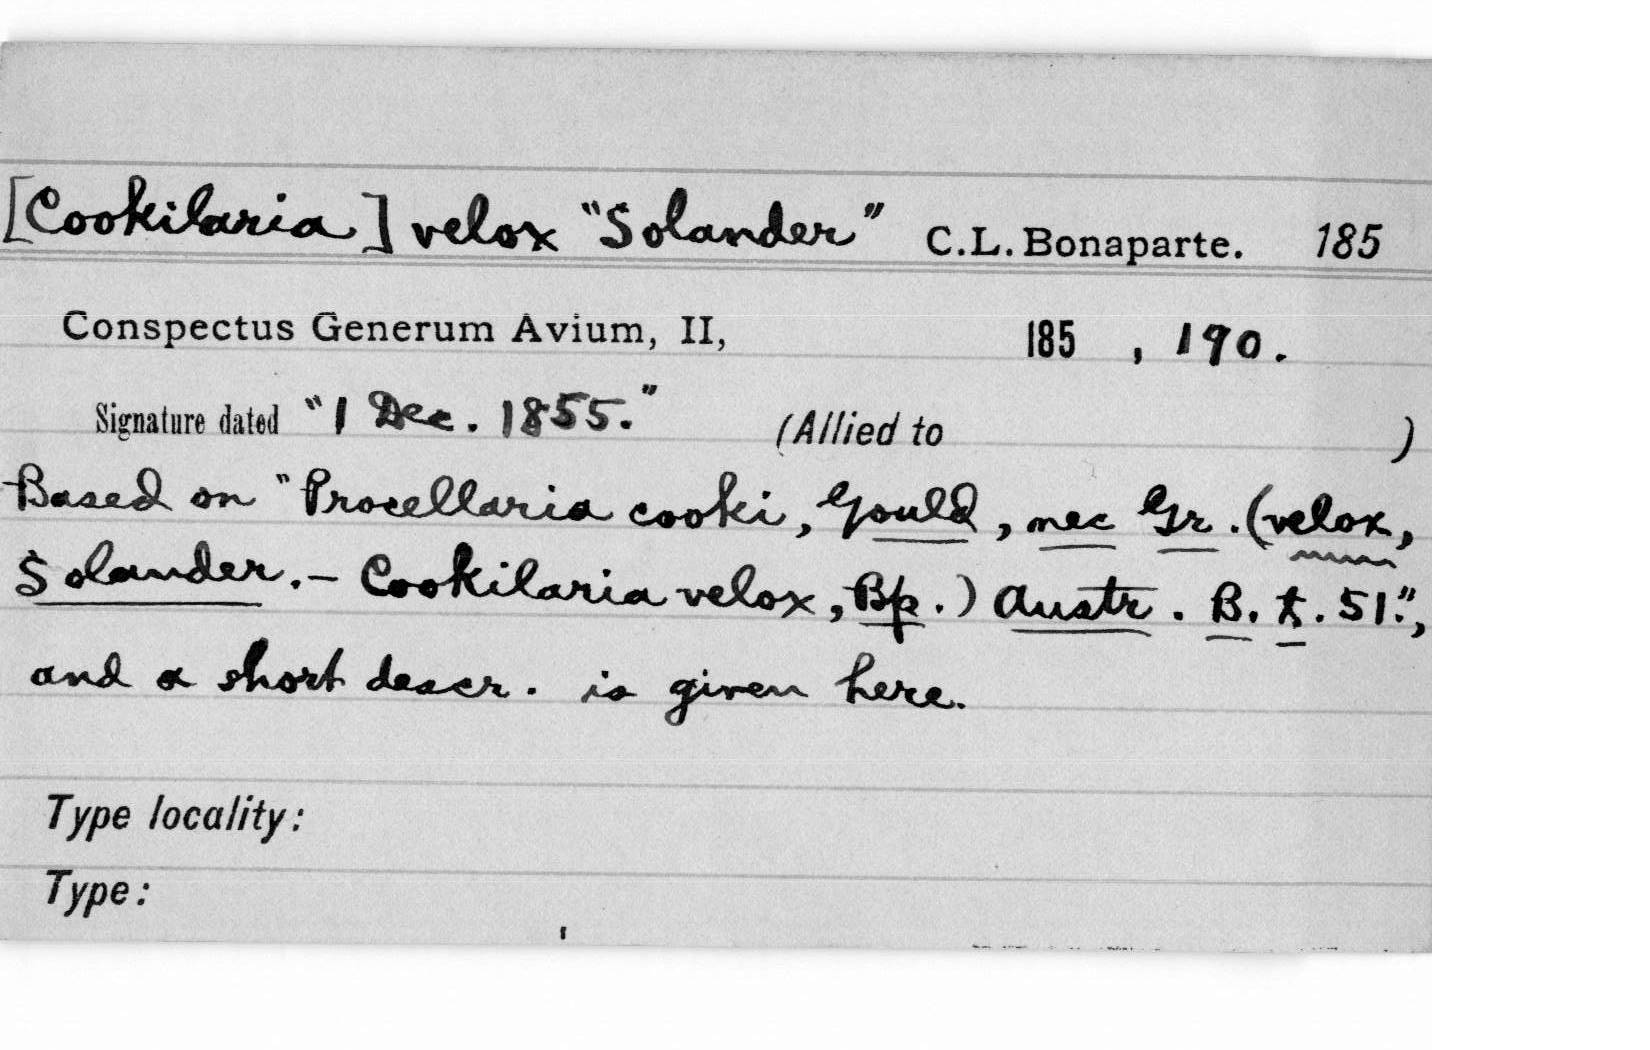 [Cookilaria] velox "Solander" C.L. Bonaparte. 185
Conspectus Generum Avium, II, 185 , 190.
Signature dated "1 Dec. 1855." (Allied to )
Based on "Procellaria cooki, Gould, nec Gr. (velox,
Solander.- Cookilaria velox, Bp.) Austr. B. t. 51.",
and a short descr. is given here.
Type locality:
Type: